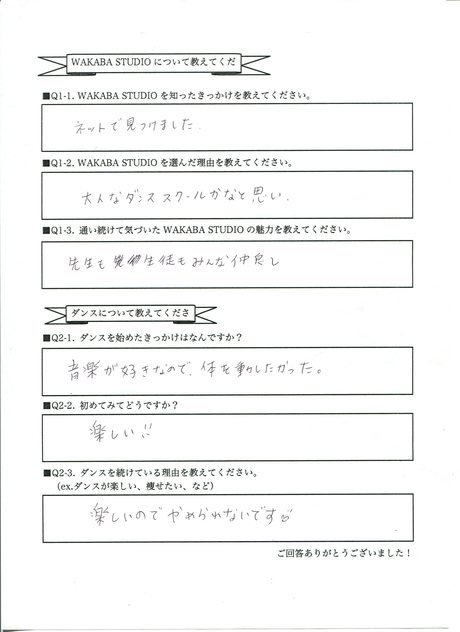 WAKABA STUDIO について教えてくだ
■Q1-1. WAKABA STUDIO を知ったきっかけを教えてください。
ネットで見つけました.
■Q1-2. WAKABA STUDIO を選んだ理由を教えてください。
大人なダンススクールかなと思い.
■Q1-3. 通い続けて気づいた WAKABA STUDIO の魅力を教えてください。
先生も生徒もみんな仲良し
ダンスについて教えてくださ
■Q2-1. ダンスを始めたきっかけはなんですか？
音楽が好きなので、体を動したかった。
■Q2-2. 初めてみてどうですか？
楽しい!!
■Q2-3. ダンスを続けている理由を教えてください。
（ex.ダンスが楽しい、痩せたい、など）
楽しいのでやめられないです
ご回答ありがとうございました！